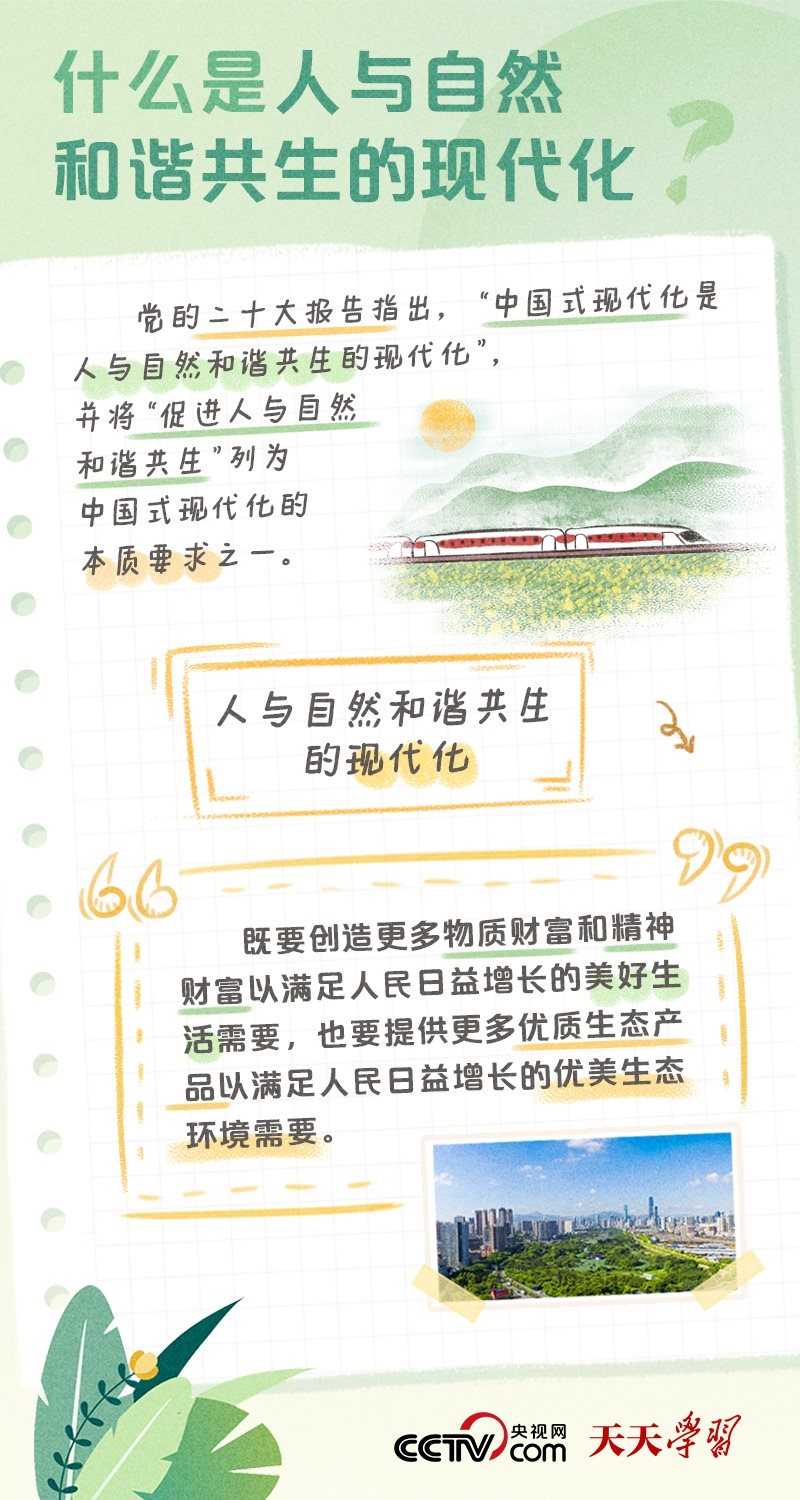 什么是人与自然
和谐共生的现代化？
党的二十大报告指出，“中国式现代化是
人与自然和谐共生的现代化”，
并将“促进人与自然
和谐共生”列为
中国式现代化的
本质要求之一。
人与自然和谐共生
的现代化
“
”
既要创造更多物质财富和精神
财富以满足人民日益增长的美好生
活需要，也要提供更多优质生态产
品以满足人民日益增长的优美生态
环境需要。
CCTV.com 央视网
天天学習